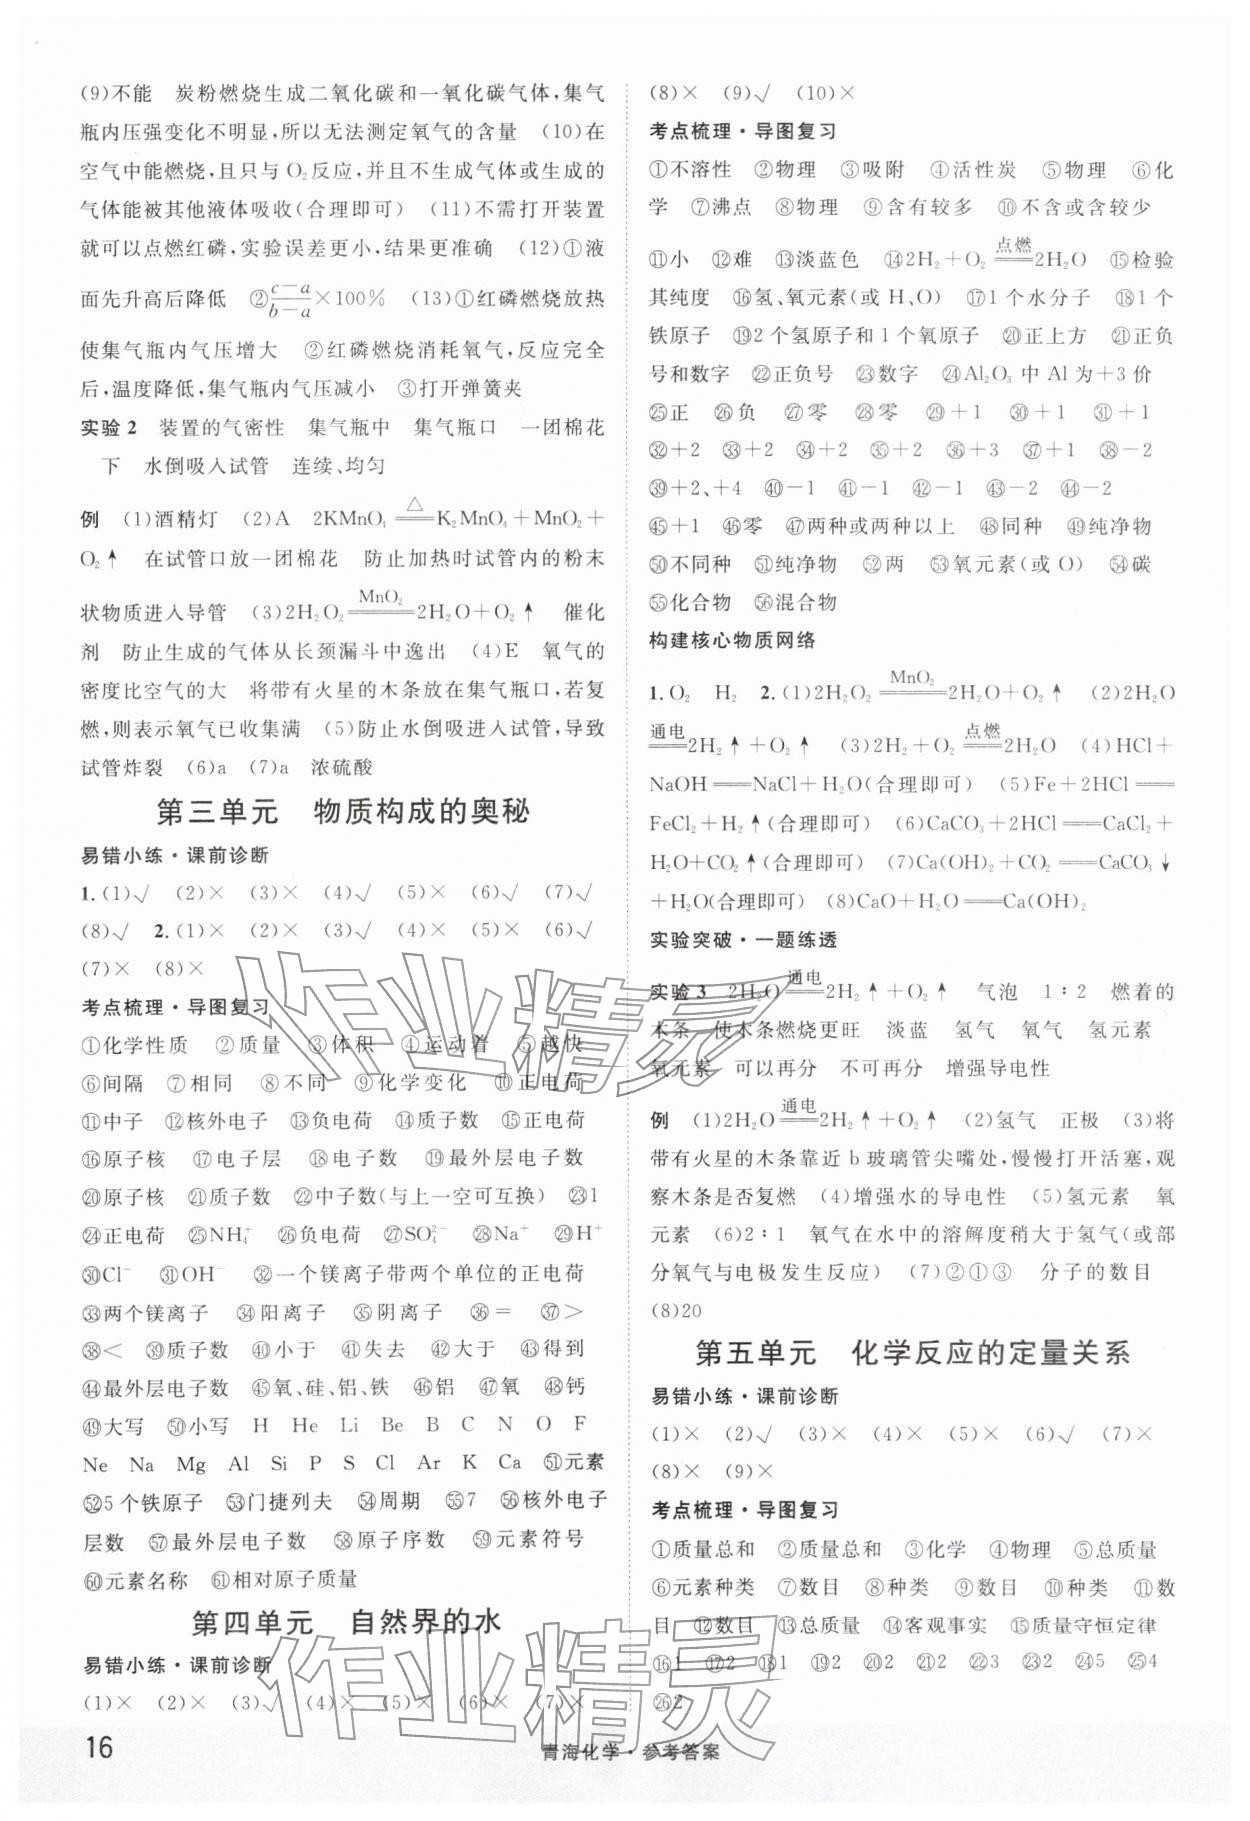 (9)不能 炭粉燃烧生成二氧化碳和一氧化碳气体,集气
瓶内压强变化不明显,所以无法测定氧气的含量 (10)在
空气中能燃烧,且只与 O₂反应,并且不生成气体或生成的
气体能被其他液体吸收(合理即可) (11)不需打开装置
就可以点燃红磷,实验误差更小,结果更准确 (12)①液
面先升高后降低 ②(c−a)/(b−a)×100% (13)①红磷燃烧放热
使集气瓶内气压增大 ②红磷燃烧消耗氧气,反应完全
后,温度降低,集气瓶内气压减小 ③打开弹簧夹
实验 2 装置的气密性 集气瓶中 集气瓶口 一团棉花
下 水倒吸入试管 连续、均匀
例 (1)酒精灯 (2)A 2KMnO₄ =△= K₂MnO₄+MnO₂+
O₂↑ 在试管口放一团棉花 防止加热时试管内的粉末
状物质进入导管 (3)2H₂O₂ =MnO₂= 2H₂O+O₂↑ 催化
剂 防止生成的气体从长颈漏斗中逸出 (4)E 氧气的
密度比空气的大 将带有火星的木条放在集气瓶口,若复
燃,则表示氧气已收集满 (5)防止水倒吸进入试管,导致
试管炸裂 (6)a (7)a 浓硫酸
第三单元 物质构成的奥秘
易错小练·课前诊断
1.(1)√ (2)× (3)× (4)√ (5)× (6)√ (7)√
(8)√ 2.(1)× (2)× (3)√ (4)× (5)× (6)√
(7)× (8)×
考点梳理·导图复习
①化学性质 ②质量 ③体积 ④运动着 ⑤越快
⑥间隔 ⑦相同 ⑧不同 ⑨化学变化 ⑩正电荷
⑪中子 ⑫核外电子 ⑬负电荷 ⑭质子数 ⑮正电荷
⑯原子核 ⑰电子层 ⑱电子数 ⑲最外层电子数
⑳原子核 ㉑质子数 ㉒中子数(与上一空可互换) ㉓1
㉔正电荷 ㉕NH₄⁺ ㉖负电荷 ㉗SO₄²⁻ ㉘Na⁺ ㉙H⁺
㉚Cl⁻ ㉛OH⁻ ㉜一个镁离子带两个单位的正电荷
㉝两个镁离子 ㉞阳离子 ㉟阴离子 ㊱= ㊲>
㊳< ㊴质子数 ㊵小于 ㊶失去 ㊷大于 ㊸得到
㊹最外层电子数 ㊺氧、硅、铝、铁 ㊻铝 ㊼氧 ㊽钙
㊾大写 ㊿小写 H He Li Be B C N O F
Ne Na Mg Al Si P S Cl Ar K Ca 51元素
52 5 个铁原子 53门捷列夫 54周期 55 7 56核外电子
层数 57最外层电子数 58原子序数 59元素符号
60元素名称 61相对原子质量
第四单元 自然界的水
易错小练·课前诊断
(1)× (2)× (3)√ (4)× (5)× (6)× (7)×
16
(8)× (9)√ (10)×
考点梳理·导图复习
①不溶性 ②物理 ③吸附 ④活性炭 ⑤物理 ⑥化
学 ⑦沸点 ⑧物理 ⑨含有较多 ⑩不含或含较少
⑪小 ⑫难 ⑬淡蓝色 ⑭2H₂+O₂ =点燃= 2H₂O ⑮检验
其纯度 ⑯氢、氧元素(或 H、O) ⑰1 个水分子 ⑱1 个
铁原子 ⑲2 个氢原子和 1 个氧原子 ⑳正上方 ㉑正负
号和数字 ㉒正负号 ㉓数字 ㉔Al₂O₃ 中 Al 为+3 价
㉕正 ㉖负 ㉗零 ㉘零 ㉙+1 ㉚+1 ㉛+1
㉜+2 ㉝+2 ㉞+2 ㉟+2 ㊱+3 ㊲+2 ㊳-2
㊴+2、+4 ㊵-1 ㊶-1 ㊷-1 ㊸-2 ㊹-2
㊺+1 ㊻零 ㊼两种或两种以上 ㊽同种 ㊾纯净物
㊿不同种 51纯净物 52两 53氧元素(或 O) 54碳
55化合物 56混合物
构建核心物质网络
1.O₂ H₂ 2.(1)2H₂O₂ =MnO₂= 2H₂O+O₂↑ (2)2H₂O
=通电= 2H₂↑+O₂↑ (3)2H₂+O₂ =点燃= 2H₂O (4)HCl+
NaOH══NaCl+H₂O(合理即可) (5)Fe+2HCl══
FeCl₂+H₂↑(合理即可) (6)CaCO₃+2HCl══CaCl₂+
H₂O+CO₂↑(合理即可) (7)Ca(OH)₂+CO₂══CaCO₃↓
+H₂O(合理即可) (8)CaO+H₂O══Ca(OH)₂
实验突破·一题练透
实验 3 2H₂O =通电= 2H₂↑+O₂↑ 气泡 1∶2 燃着的
木条 使木条燃烧更旺 淡蓝 氢气 氧气 氢元素
氧元素 可以再分 不可再分 增强导电性
例 (1)2H₂O =通电= 2H₂↑+O₂↑ (2)氢气 正极 (3)将
带有火星的木条靠近 b 玻璃管尖嘴处,慢慢打开活塞,观
察木条是否复燃 (4)增强水的导电性 (5)氢元素 氧
元素 (6)2∶1 氧气在水中的溶解度稍大于氢气(或部
分氧气与电极发生反应) (7)②①③ 分子的数目
(8)20
第五单元 化学反应的定量关系
易错小练·课前诊断
(1)× (2)√ (3)× (4)× (5)× (6)√ (7)×
(8)× (9)×
考点梳理·导图复习
①质量总和 ②质量总和 ③化学 ④物理 ⑤总质量
⑥元素种类 ⑦数目 ⑧种类 ⑨数目 ⑩种类 ⑪数
目 ⑫数目 ⑬总质量 ⑭客观事实 ⑮质量守恒定律
⑯1 ⑰2 ⑱1 ⑲2 ⑳2 ㉑2 ㉒3 ㉓2 ㉔5 ㉕4
㉖2
青海化学·参考答案
作业精灵
作业精灵